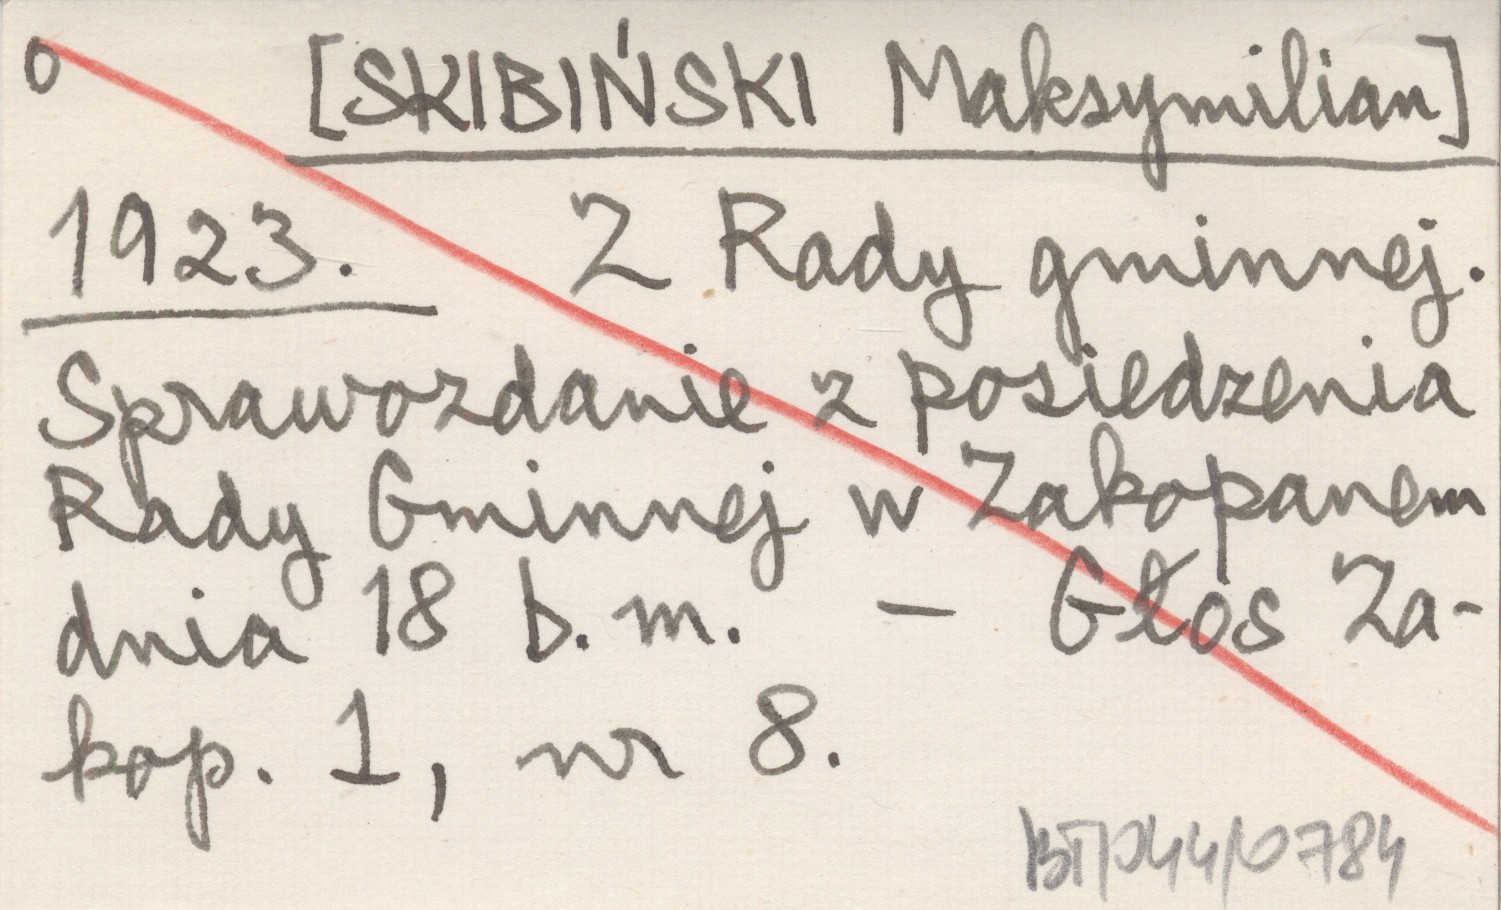 o [SKIBIŃSKI Maksymilian]
1923. Z Rady gminnej.
Sprawozdanie z posiedzenia
Rady Gminnej w Zakopanem
dnia 18 b. m. – Głos Za-
kop. 1, nr 8.
BT/044/0784